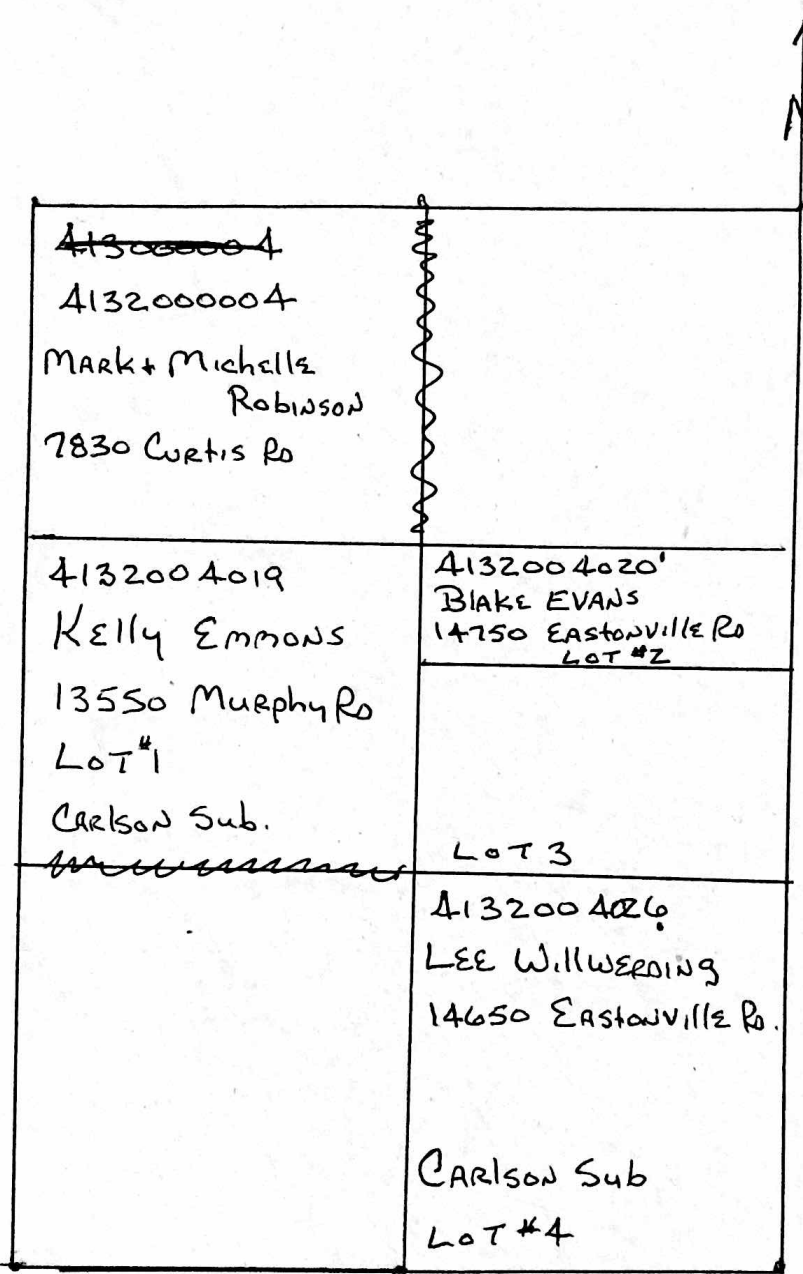 N
413000004
4132000004
MARK + Michelle
Robinson
7830 Curtis Rd
4132004019
Kelly Emmons
13550 Murphy Rd
Lot #1
Carlson Sub.
4132004020'
Blake Evans
14750 Eastonville Rd
Lot #2
Lot 3
4132004026
Lee Willwerding
14650 Eastonville Rd.
Carlson Sub
Lot #4